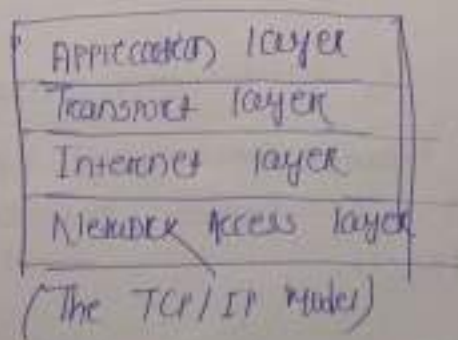 Application layer
Transport layer
Internet layer
Network Access layer
(The TCP/IP Model)